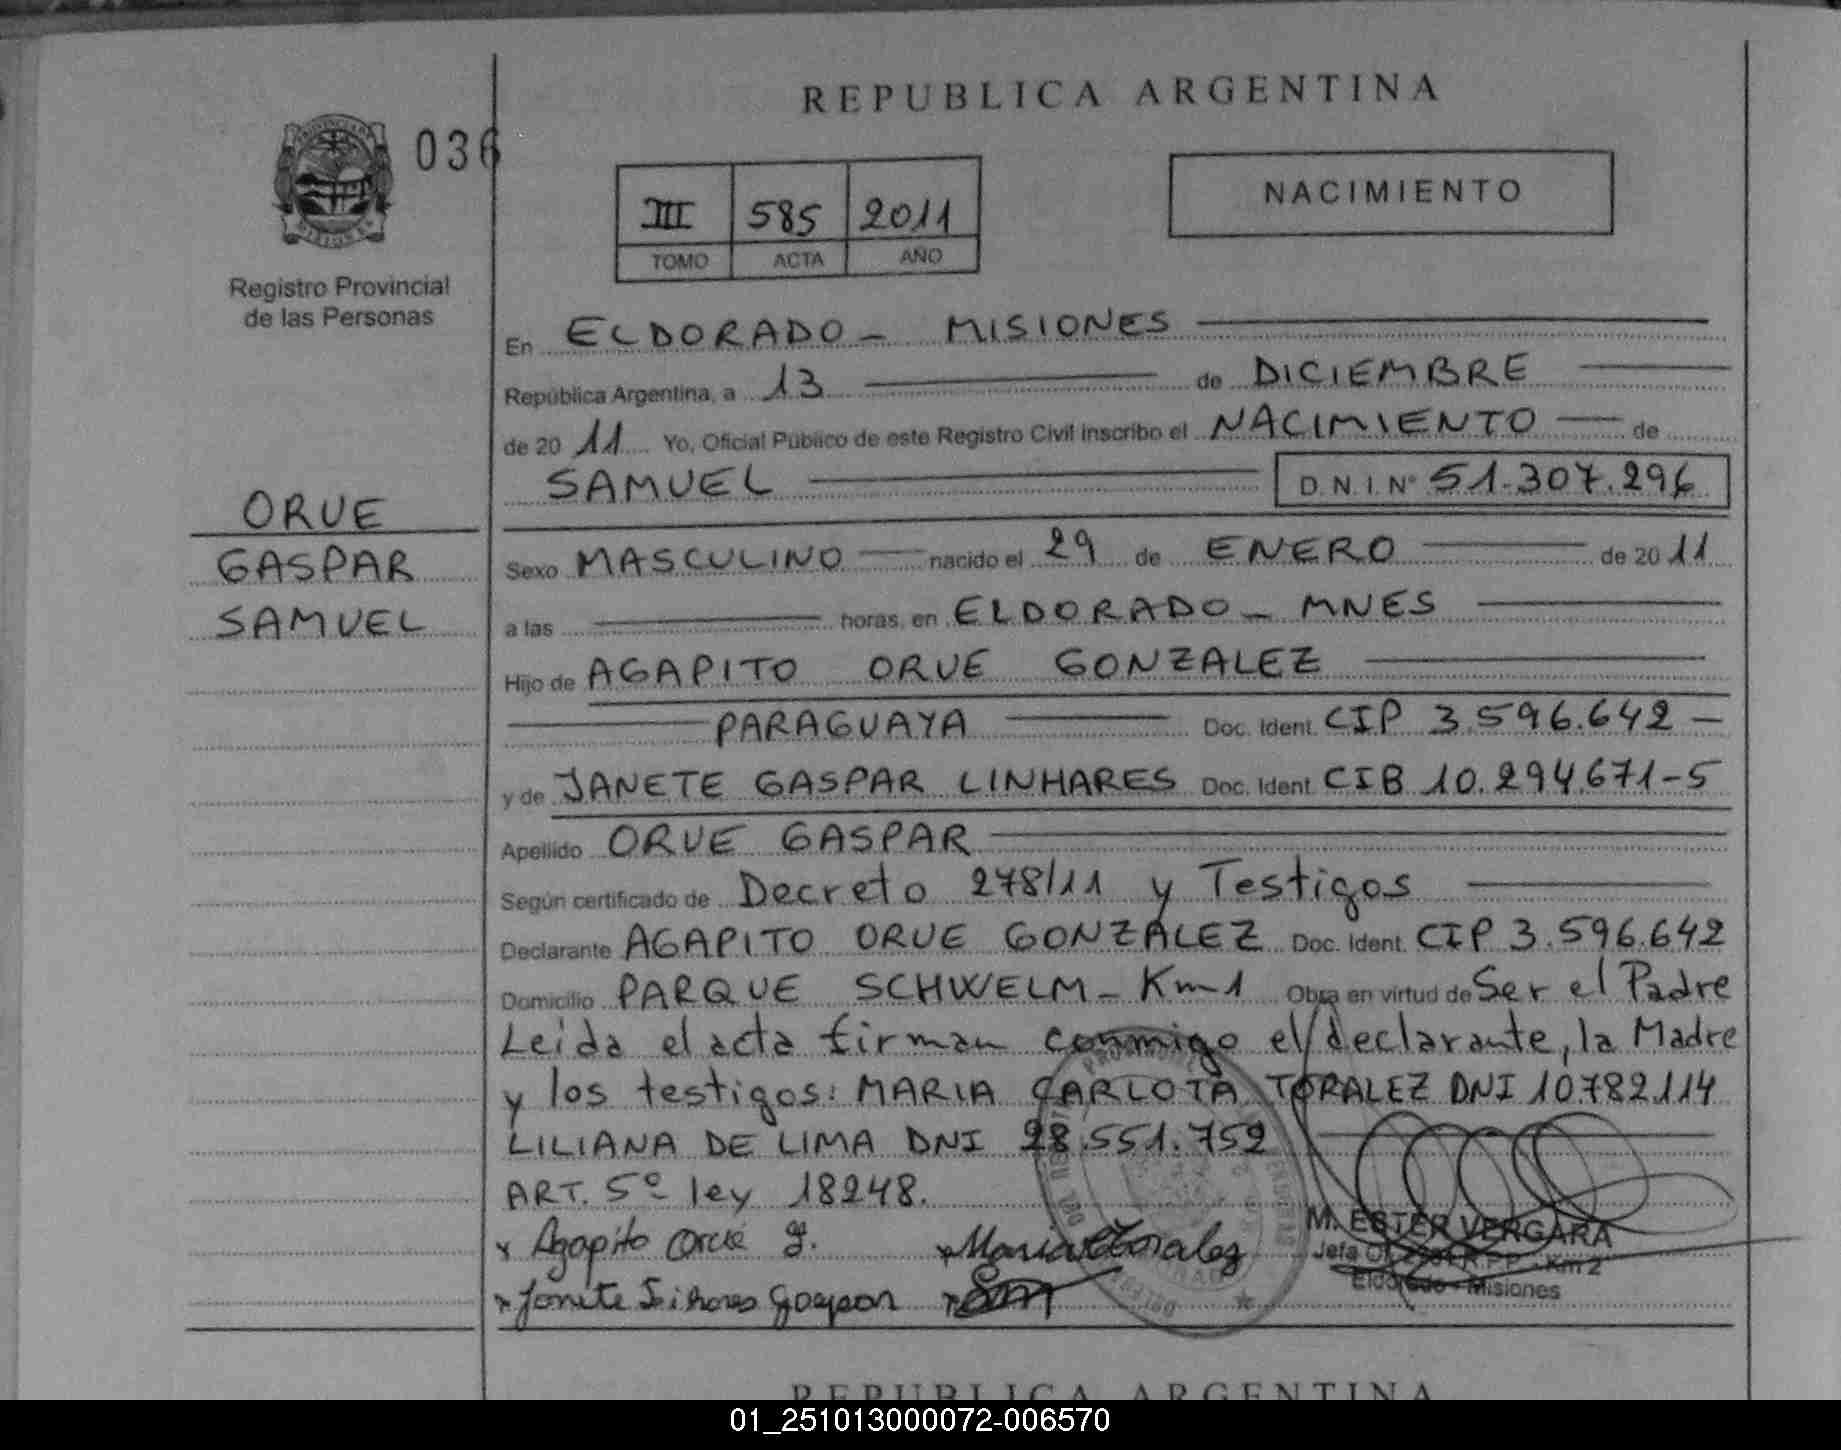 REPUBLICA ARGENTINA
036
NACIMIENTO
III 585 2011
TOMO ACTA AÑO
Registro Provincial
de las Personas
En ELDORADO - MISIONES
República Argentina, a 13 de DICIEMBRE
de 20 11 Yo, Oficial Público de este Registro Civil inscribo el NACIMIENTO de
SAMUEL D.N.I. Nº 51.307.296
ORUE
GASPAR
SAMUEL
Sexo MASCULINO nacido el 29 de ENERO de 20 11
a las horas, en ELDORADO - MNES
Hijo de AGAPITO ORUE GONZALEZ
PARAGUAYA Doc. Ident. CIP 3.596.642 -
y de JANETE GASPAR LINHARES Doc. Ident. CIB 10.294.671-5
Apellido ORUE GASPAR
Según certificado de Decreto 278/11 y Testigos
Declarante AGAPITO ORUE GONZALEZ Doc. Ident. CIP 3.596.642
Domicilio PARQUE SCHWELM - Km 1 Obra en virtud de Ser el Padre
Leida el acta firman conmigo el declarante, la Madre
y los testigos: MARIA CARLOTA TORALEZ DNI 10.782.114
LILIANA DE LIMA DNI 28.551.752
ART. 5º ley 18248.
x Agapito Orué g.
M. ESTER VERGARA
Eldorado - Misiones
REPUBLICA ARGENTINA
01_251013000072-006570